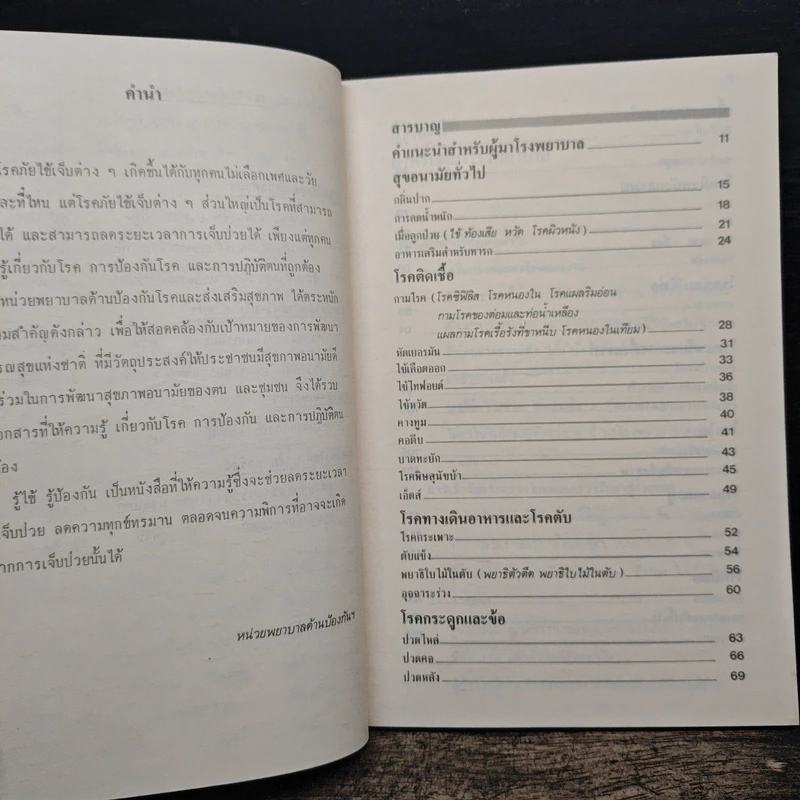 คำนำ
โรคภัยไข้เจ็บต่าง ๆ เกิดขึ้นได้กับทุกคนไม่เลือกเพศและวัย
ละที่ไหน แต่โรคภัยไข้เจ็บต่าง ๆ ส่วนใหญ่เป็นโรคที่สามารถ
ได้ และสามารถลดระยะเวลาการเจ็บป่วยได้ เพียงแต่ทุกคน
รู้เกี่ยวกับโรค การป้องกันโรค และการปฏิบัติตนที่ถูกต้อง
หน่วยพยาบาลด้านป้องกันโรคและส่งเสริมสุขภาพ ได้ตระหนัก
มสำคัญดังกล่าว เพื่อให้สอดคล้องกับเป้าหมายของการพัฒนา
รณสุขแห่งชาติ ที่มีวัตถุประสงค์ให้ประชาชนมีสุขภาพอนามัยดี
ร่วมในการพัฒนาสุขภาพอนามัยของตน และชุมชน จึงได้รวบ
อกสารที่ให้ความรู้ เกี่ยวกับโรค การป้องกัน และการปฏิบัติตน
ต้อง
รู้ไข้ รู้ป้องกัน เป็นหนังสือที่ให้ความรู้ซึ่งจะช่วยลดระยะเวลา
เจ็บป่วย ลดความทุกข์ทรมาน ตลอดจนความพิการที่อาจจะเกิด
ากการเจ็บป่วยนั้นได้
หน่วยพยาบาลด้านป้องกันฯ
สารบาญ
คำแนะนำสำหรับผู้มาโรงพยาบาล 11
สุขอนามัยทั่วไป
กลิ่นปาก 15
การลดน้ำหนัก 18
เมื่อลูกป่วย (ไข้ ท้องเสีย หวัด โรคผิวหนัง) 21
อาหารเสริมสำหรับทารก 24
โรคติดเชื้อ
กามโรค (โรคซิฟิลิส โรคหนองใน โรคแผลริมอ่อน
กามโรคของต่อมและท่อน้ำเหลือง
แผลกามโรคเรื้อรังที่ขาหนีบ โรคหนองในเทียม) 28
หัดเยอรมัน 31
ไข้เลือดออก 33
ไข้ไทฟอยด์ 36
ไข้หวัด 38
คางทูม 40
คอตีบ 41
บาดทะยัก 43
โรคพิษสุนัขบ้า 45
เอ็ดส์ 49
โรคทางเดินอาหารและโรคตับ
โรคกระเพาะ 52
ตับแข็ง 54
พยาธิใบไม้ในตับ (พยาธิตัวตืด พยาธิใบไม้ในตับ) 56
อุจจาระร่วง 60
โรคกระดูกและข้อ
ปวดไหล่ 63
ปวดคอ 66
ปวดหลัง 69